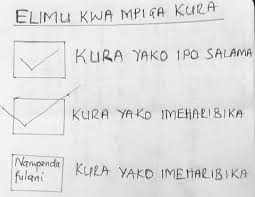 ELIMU KWA MPIGA KURA
KURA YAKO IPO SALAMA
KURA YAKO IMEHARIBIKA
Nampenda
fulani
KURA YAKO IMEHARIBIKA